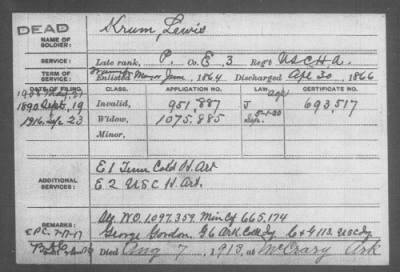 DEAD
NAME OF SOLDIER: Krum Lewis
SERVICE: Late rank, P. Co. E, 3 Reg't U S C H A.
TERM OF SERVICE: Enlisted June, 1864 Discharged Apl 30, 1866
DATE OF FILING. CLASS. APPLICATION NO. LAW. CERTIFICATE NO.
1890 Sept. 19 Invalid, 951,887 J 693,517
1916 23 Widow, 1,075,885
Minor,
ADDITIONAL SERVICES: E 1 Tenn Cold H. Art
E 2 U S C H. Art.
REMARKS: W.O. 1,097,359. Min Cf 665,174
George Gordon. G 6 Ark Cold C & G 113. U S C
Died Aug 7, 1913, at McCrary Ark